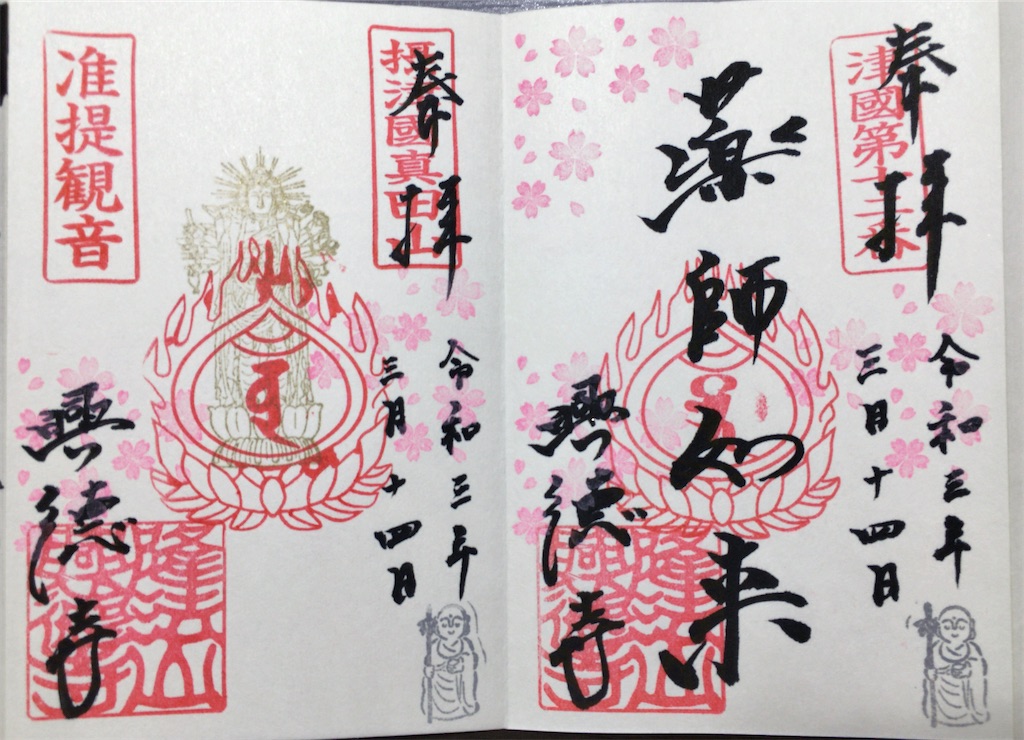 奉拝
津國第十二番
令和三年
三月十四日
薬師如来
興徳寺
奉拝
摂津國真田山
令和三年
三月十四日
准提観音
興徳寺